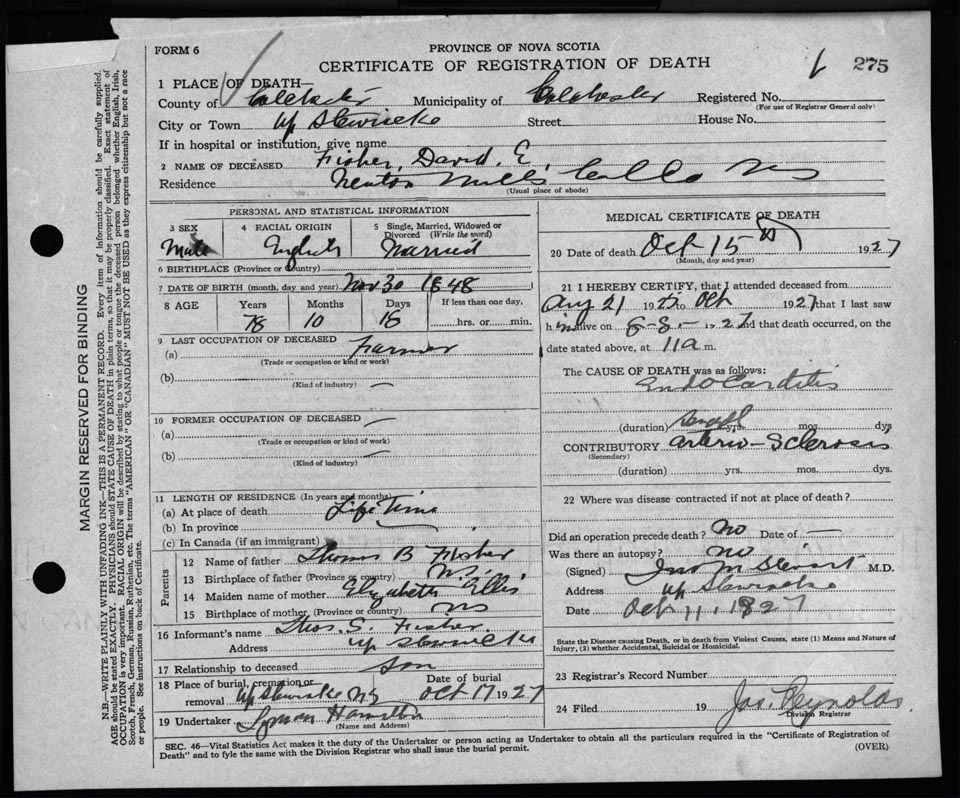 FORM 6
PROVINCE OF NOVA SCOTIA
CERTIFICATE OF REGISTRATION OF DEATH
275
1 PLACE OF DEATH—
County of Colchester Municipality of Colchester Registered No.
(For use of Registrar General only)
City or Town Up Stewiacke Street House No.
If in hospital or institution, give name
2 NAME OF DECEASED Fisher, David. E.
Residence Newton Mills Col Co NS
(Usual place of abode)
PERSONAL AND STATISTICAL INFORMATION
3 SEX 4 RACIAL ORIGIN 5 Single, Married, Widowed or Divorced (Write the word)
Male English Married
6 BIRTHPLACE (Province or Country)
7 DATE OF BIRTH (month, day and year) Nov 30 1848
8 AGE Years Months Days If less than one day,
78 10 15 hrs. or min.
9 LAST OCCUPATION OF DECEASED
(a) Farmer
(Trade or occupation or kind or work)
(b)
(Kind of industry)
10 FORMER OCCUPATION OF DECEASED
(a)
(Trade or occupation or kind of work)
(b)
(Kind of industry)
11 LENGTH OF RESIDENCE (In years and months)
(a) At place of death Life Time
(b) In province
(c) In Canada (if an immigrant)
Parents
12 Name of father Thomas B Fisher
13 Birthplace of father (Province or country) N.S.
14 Maiden name of mother Elizabeth Ellis
15 Birthplace of mother, (Province or country) NS
16 Informant's name Thos. E. Fisher
Address Up Stewiacke
17 Relationship to deceased son
18 Place of burial, cremation or removal Up Stewiacke NS Date of burial Oct 17 1927
19 Undertaker Lyman Hamilton
(Name and Address)
MEDICAL CERTIFICATE OF DEATH
20 Date of death Oct 15th 1927
(Month, day and year)
21 I HEREBY CERTIFY, that I attended deceased from
Aug 21 1925 to Oct 1927 that I last saw
him alive on 8-8- 1927 and that death occurred, on the
date stated above, at 11 a m.
The CAUSE OF DEATH was as follows:
Endocarditis
(duration) yrs. mos. dys
CONTRIBUTORY Arterio-Sclerosis
(Secondary)
(duration) yrs. mos. dys.
22 Where was disease contracted if not at place of death?
Did an operation precede death? No Date of —
Was there an autopsy? no
(Signed) Jno M Stewart M.D.
Address Up Stewiacke
Date Oct 11, 1927
State the Disease causing Death, or in death from Violent Causes, state (1) Means and Nature of
Injury, (2) whether Accidental, Suicidal or Homicidal.
23 Registrar's Record Number
24 Filed 19 Jas. Reynolds
Division Registrar
SEC. 46—Vital Statistics Act makes it the duty of the Undertaker or person acting as Undertaker to obtain all the particulars required in the "Certificate of Registration of
Death" and to fyle the same with the Division Registrar who shall issue the burial permit.
(OVER)
MARGIN RESERVED FOR BINDING
N.B.—WRITE PLAINLY WITH UNFADING INK—THIS IS A PERMANENT RECORD. Every item of information should be carefully supplied.
AGE should be stated EXACTLY. PHYSICIANS should STATE CAUSE OF DEATH in plain terms, so that it may be properly classified. Exact statement of
OCCUPATION is very important. RACIAL ORIGIN will be described by stating to what people or tongue the deceased person belonged whether English, Irish,
Scotch, French, German, Russian, Ruthenian, etc. The terms "AMERICAN" OR "CANADIAN" MUST NOT BE USED as they express citizenship but not a race
or people. See instructions on back of Certificate.